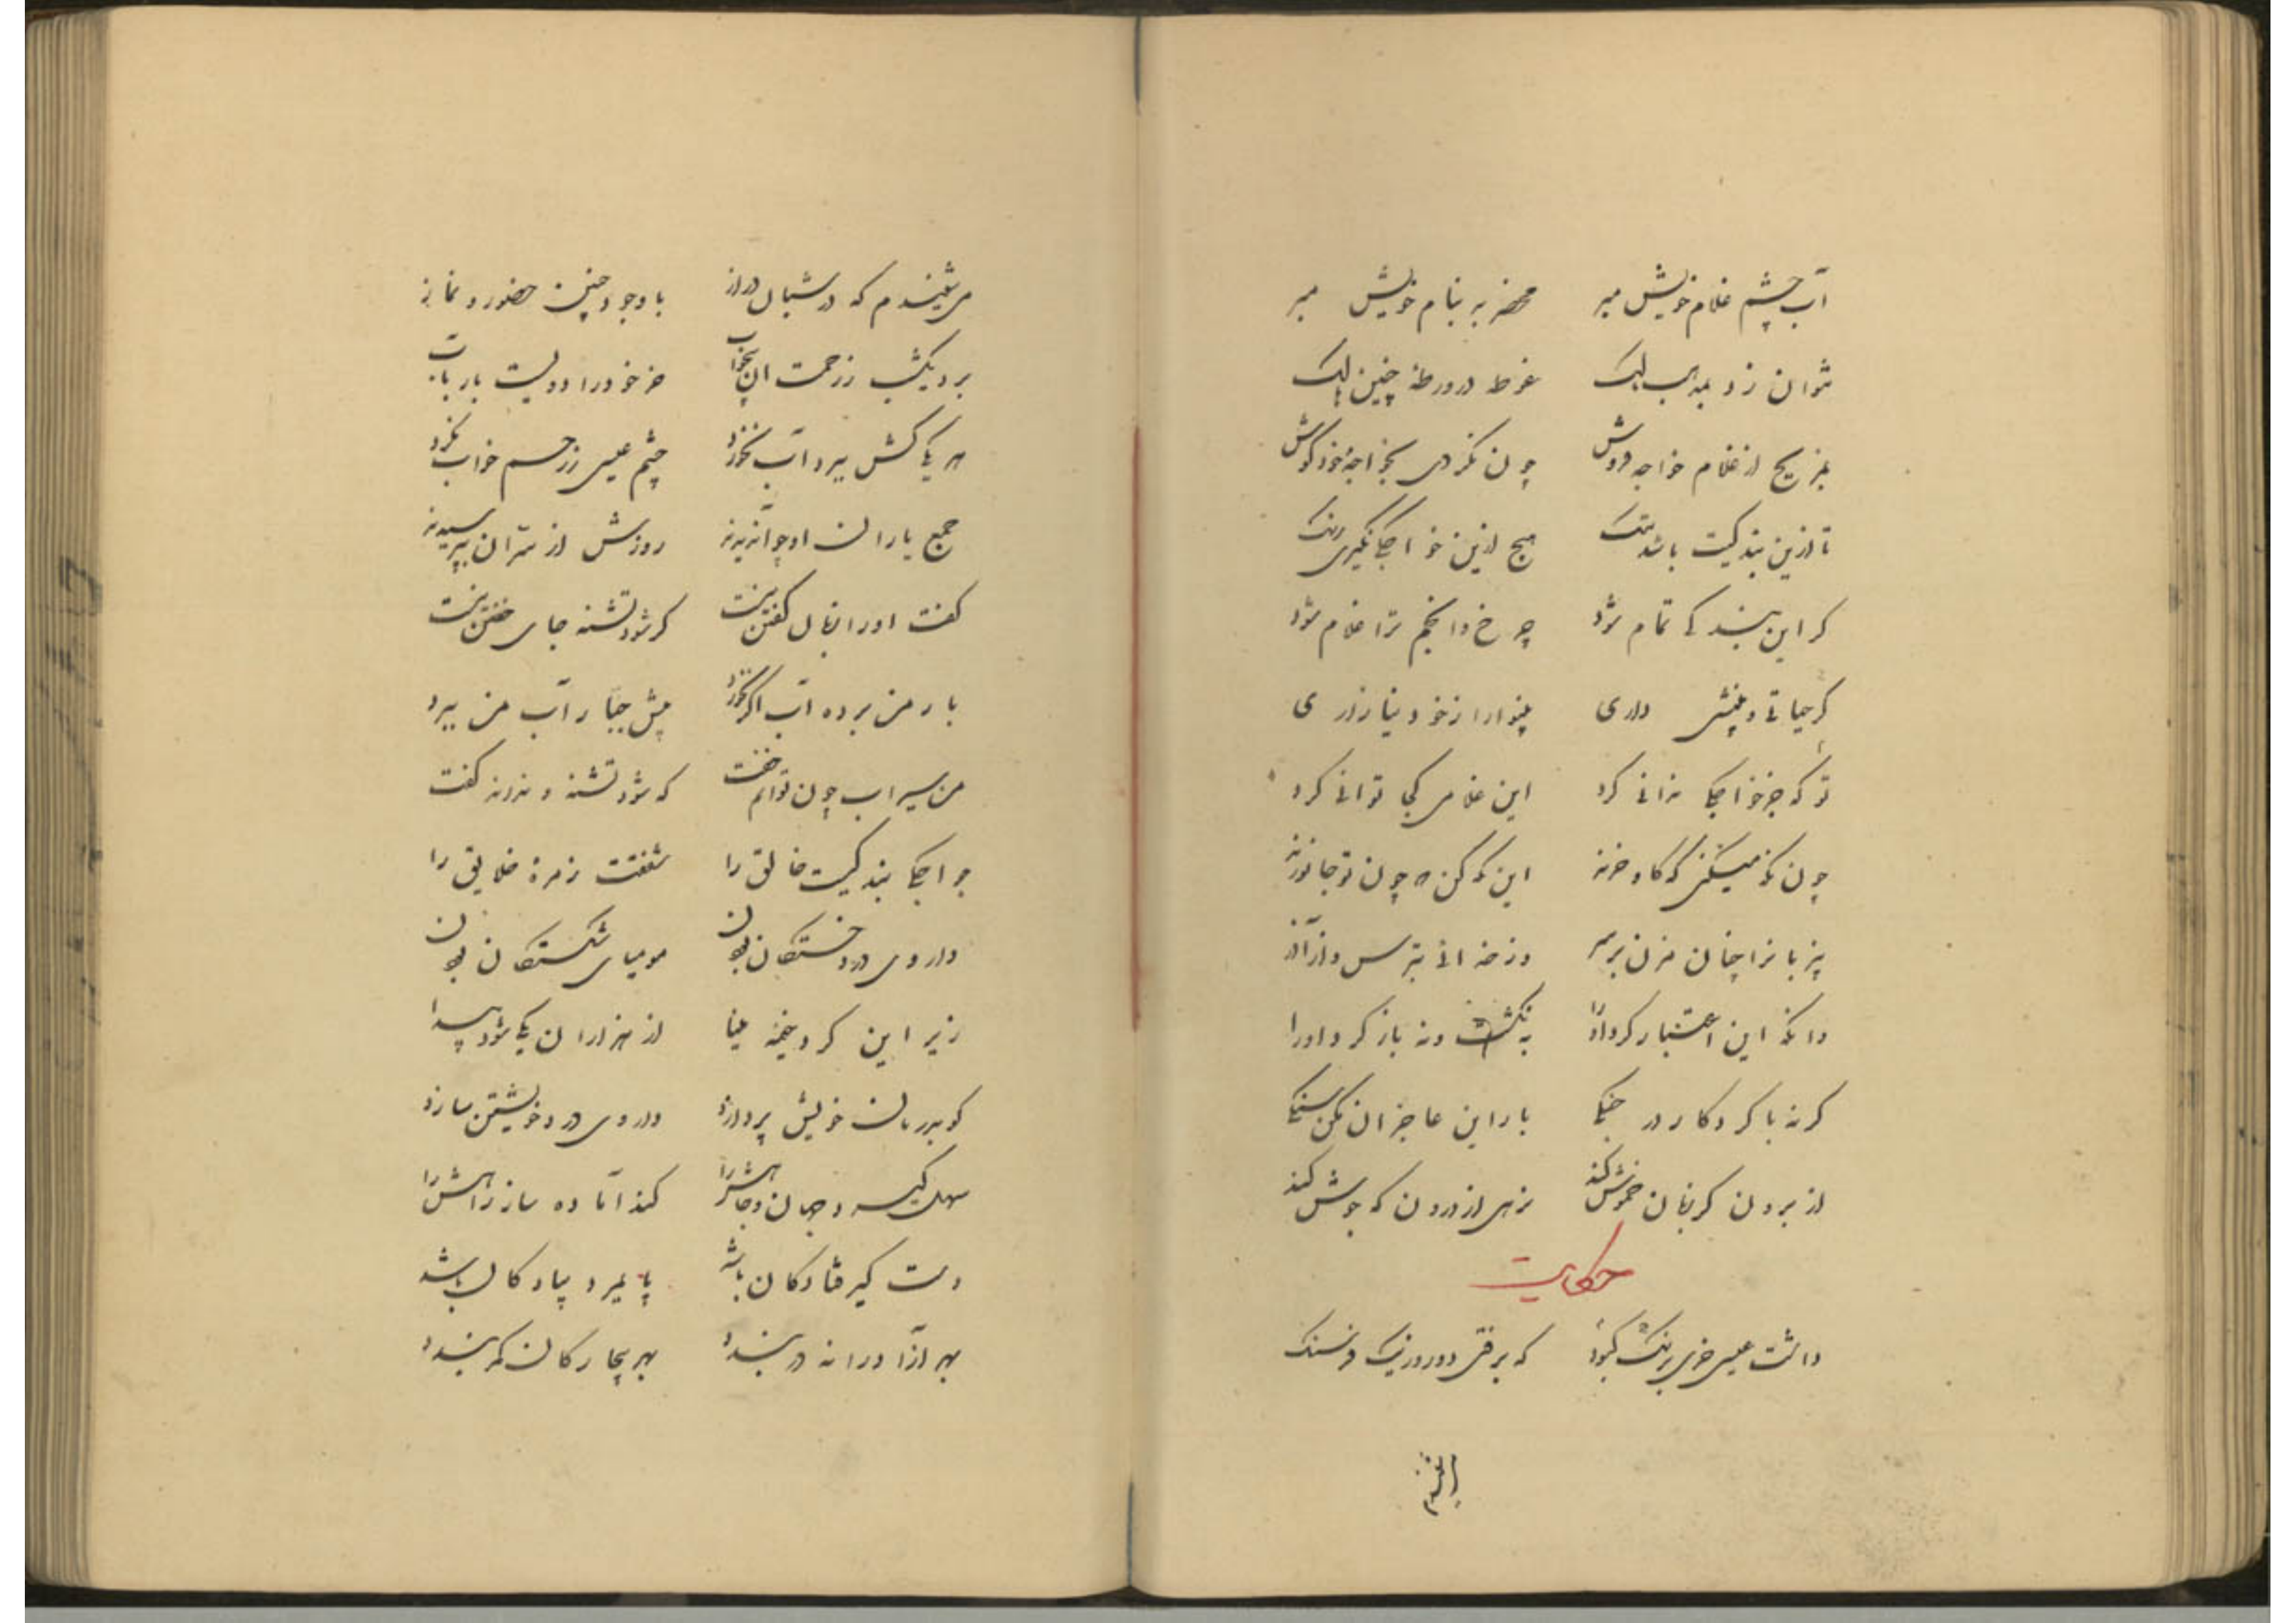 آب چشم غلام خویش مبر محضر بد بنام خویش مبر
نتوان زد بمذهب مالک غوطه در ورطهٔ چنین هالک
هیچ از غلام خواجه فروش چون نکردی بخواجه خود گوش
تا ازین بندگیت باشد ننگ هیچ ازین خواجگی نگیری رنگ
کر این بندگی تمام شود چرخ و انجم ترا غلام شود
کر حیاتی و بینشی داری بینوا را ز خود نیازاری
تو که جز خواجگی ندانی کرد این غلامی کجا توانی کرد
چون نکه میکنی که گاو و خرند این نکه کن که چون تو جانورند
بار را چنان مزن بر سر وز خدا بترس و از آذر
وانکه این اعتبار کرد او را نکشت و نه باز کرد او را
کرنه با کردکار در جنگی بار این عاجزان مکن سنگی
از برون کر زبان خموش کند بزهی از درون که جوش کند
حکایت
داشت عیسی خری برنگ کبود که برفتی دو روز یک فرسنگ
می شنیدم که در شبان دراز با وجود چنین حضور و نماز
برد یکشب ز زحمت آن بیخواب خر خود را دویست بار بآب
هر یکی کش ببرد آب نخورد چشم عیسی ز رحم خواب نکرد
جمع یاران او چو آن دیدند روزش از سر آن بپرسیدند
کفت او را زبان کفتن نیست کر شود تشنه جای خفتن نیست
بار من برده آب اگر نخورد پیش جبار آب من ببرد
من سیراب چون توانم خفت که شود تشنه و نداند کفت
خواجگی بندگیست خالق را شفقت زمرهٔ خلایق را
داروی درد خستگان بودن مومیای شکستگان بودن
زیر این کرد خیمه مینا از هزاران یکی شود پیدا
کو بدرمان خویش پردازد داروی درد خویشتن سازد
کند آماده ساز راهش را
دست گیر فتادگان باشد پایمرد پیادگان باشد
بهر آزاد ورا نه دربندد بهر بیچارگان کمر بندد